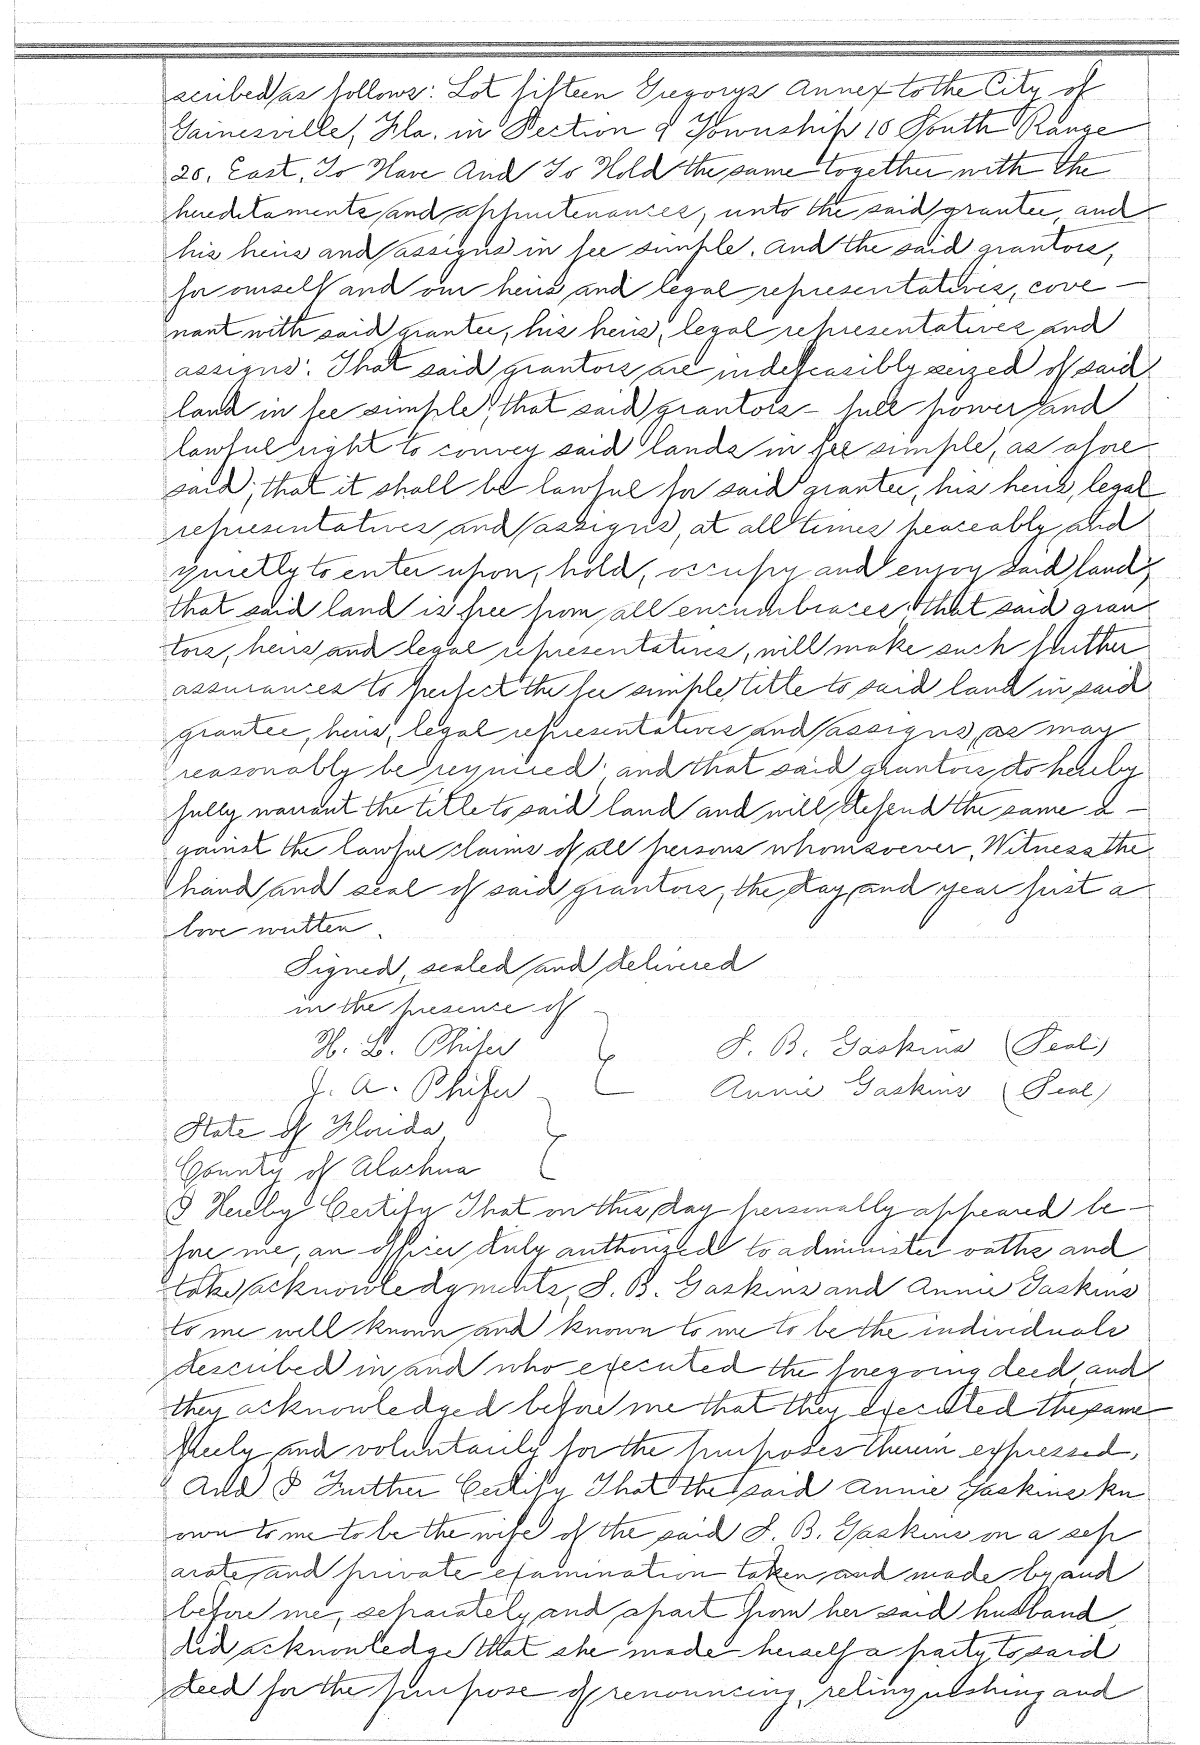 scribed as follows: Lot fifteen Gregorys Annex to the City of
Gainesville, Fla. in Section 9 Township 10 South Range
20. East. To Have And To Hold the same together with the
hereditaments and appurtenances, unto the said grantee, and
his heirs and assigns in fee simple. And the said grantors,
for ourself and our heirs and legal representatives, cove-
nant with said grantee, his heirs, legal representatives and
assigns: That said grantors are indefeasibly seized of said
land in fee simple; that said grantors - full power and
lawful right to convey said lands in fee simple, as afore
said; that it shall be lawful for said grantee, his heirs, legal
representatives and assigns, at all times peaceably and
quietly to enter upon, hold, occupy and enjoy said land;
that said land is free from all encumbraces; that said gran
tors, heirs and legal representatives, will make such further
assurances to perfect the fee simple title to said land in said
grantee, heirs, legal representatives and assigns, as may
reasonably be required; and that said grantors do hereby
fully warrant the title to said land and will defend the same a-
gainst the lawful claims of all persons whomsoever. Witness the
hand and seal of said grantors, the day and year first a
bove written.
Signed, sealed and delivered
in the presence of
H. L. Phifer S. B. Gaskins (Seal)
J. A. Phifer Annie Gaskins (Seal)
State of Florida
County of Alachua
I Hereby Certify That on this day personally appeared be-
fore me, an officer duly authorized to administer oaths and
take acknowledgments, S. B. Gaskins and Annie Gaskins
to me well known and known to me to be the individuals
described in and who executed the foregoing deed, and
they acknowledged before me that they executed the same
freely and voluntarily for the purposes therein expressed.
And I Further Certify That the said Annie Gaskins kn
own to me to be the wife of the said S. B. Gaskins on a sep
arate and private examination taken and made by and
before me, separately and apart from her said husband,
did acknowledge that she made herself a party to said
deed for the purpose of renouncing, relinquishing and